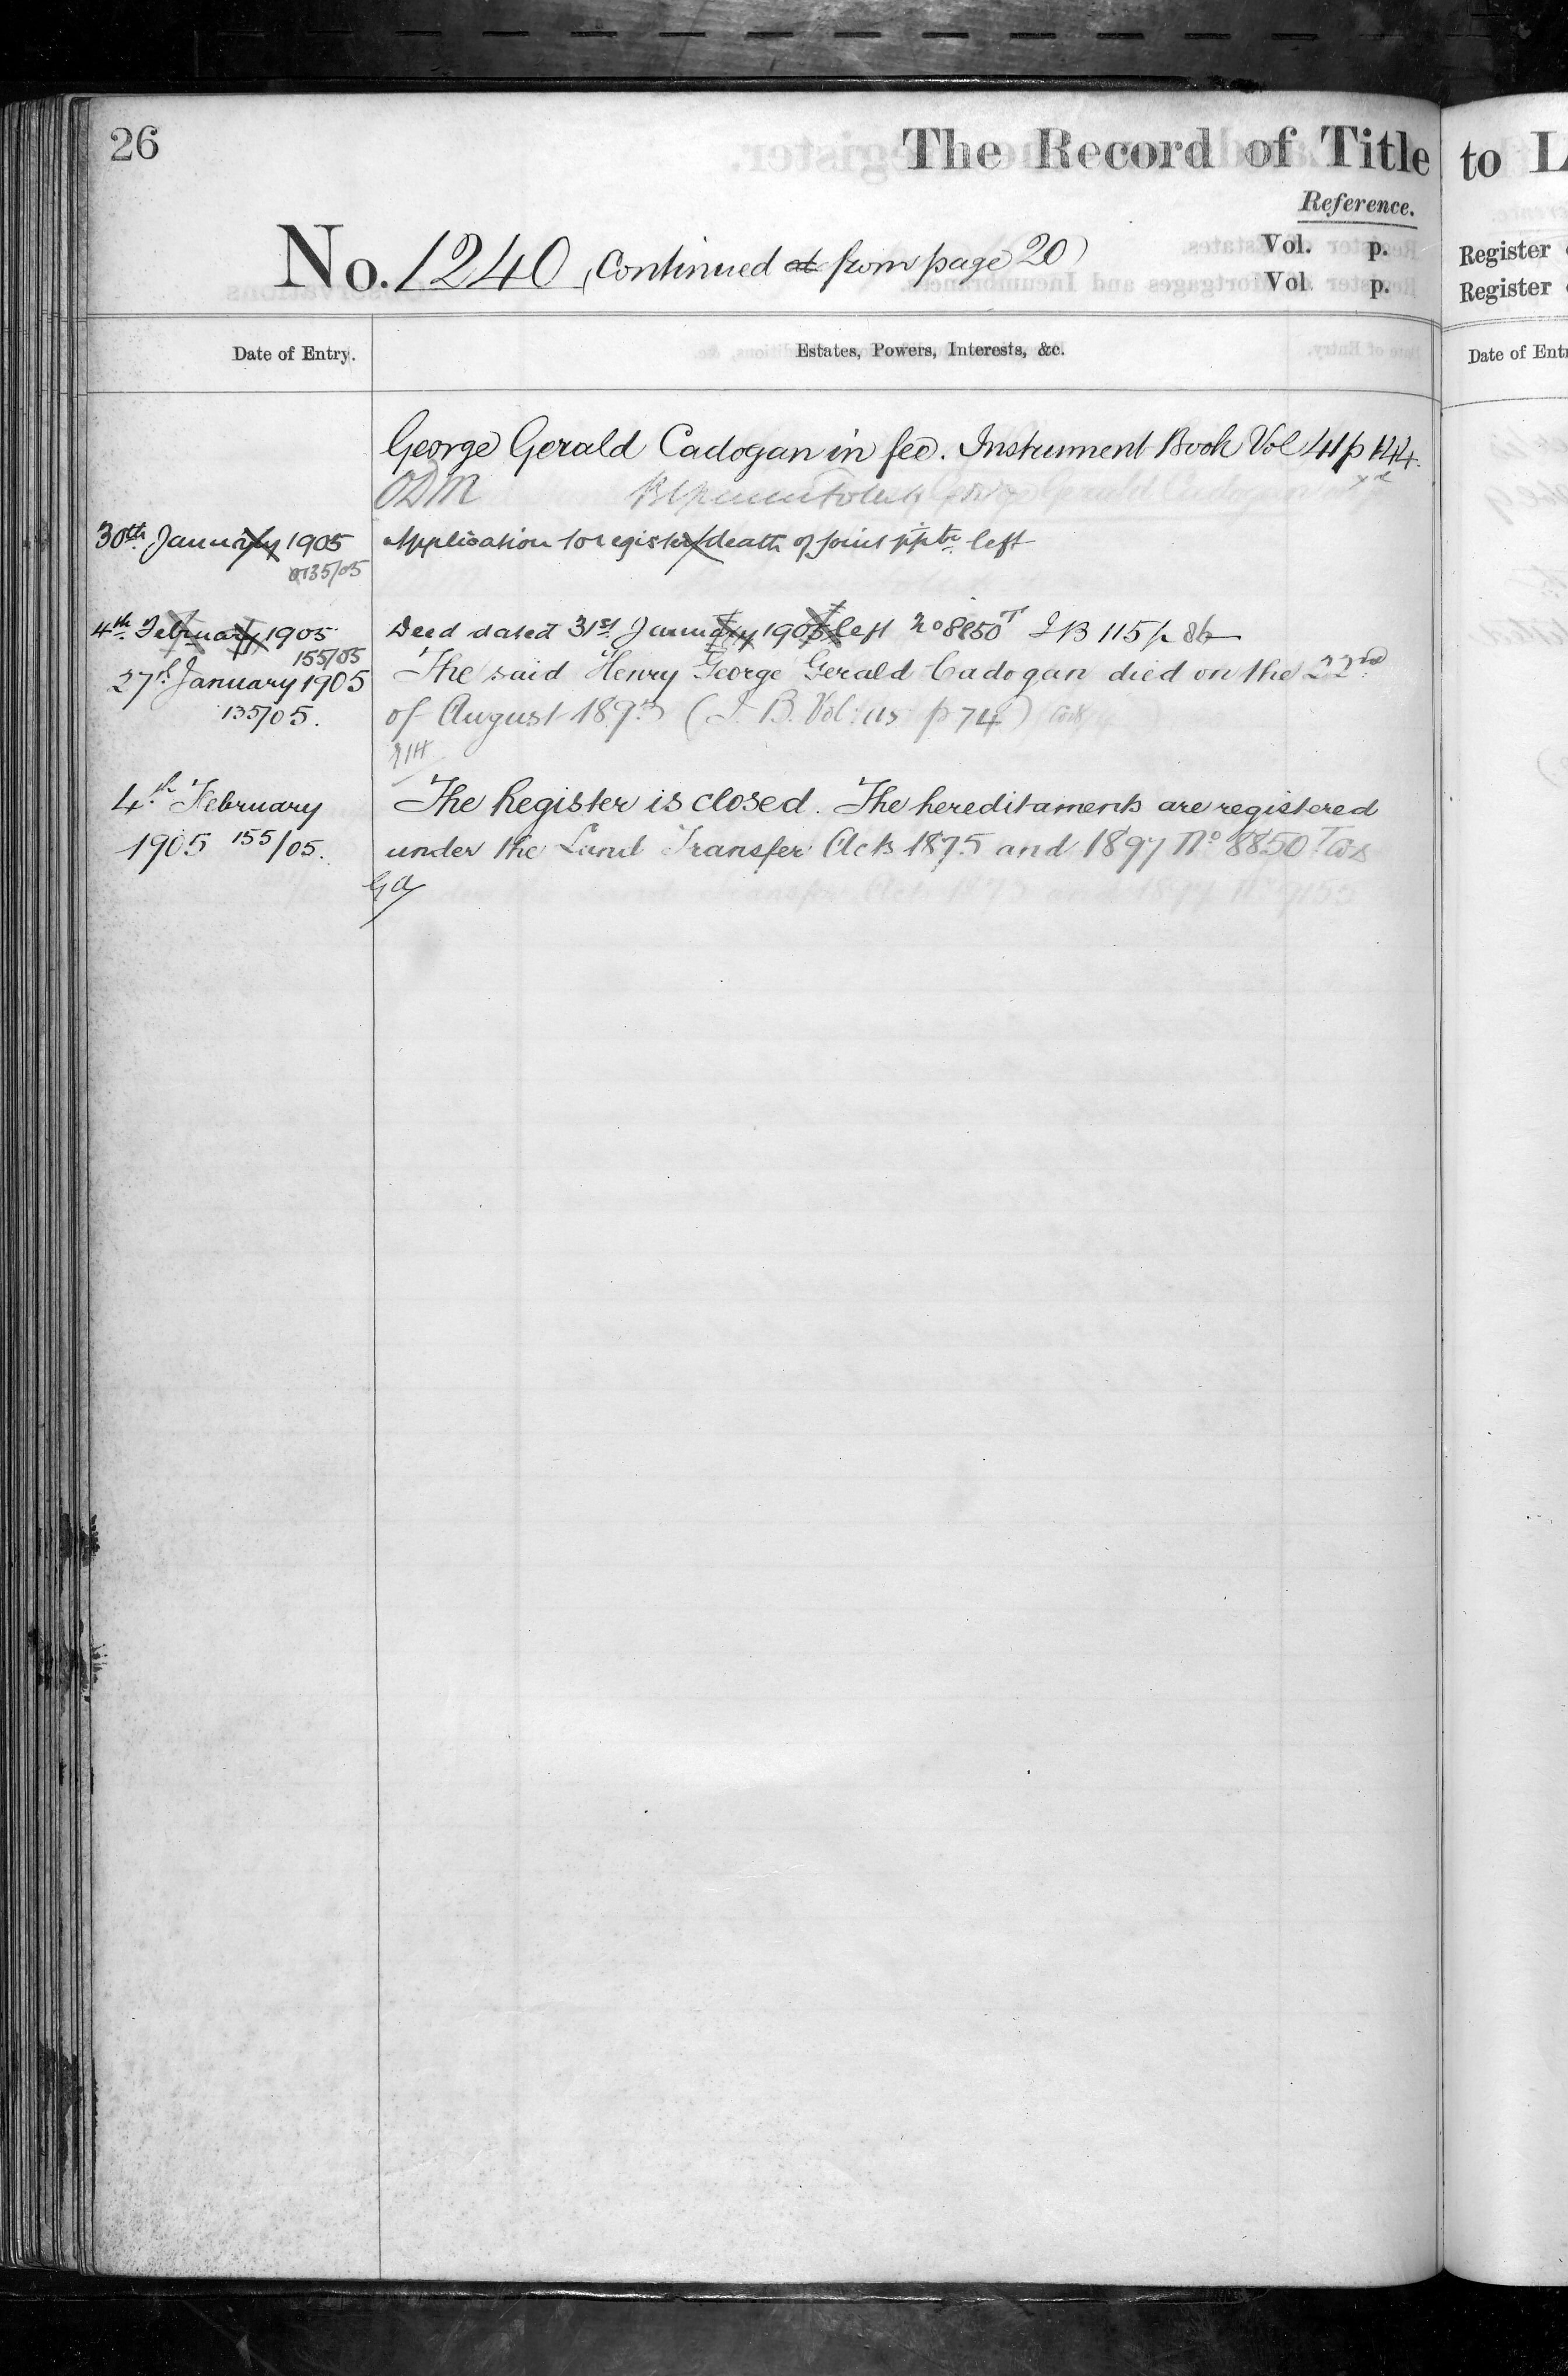 26
The Record of Title
Reference.
No. 1240 (Continued at from page 20)
Vol. p.
Vol. p.
Date of Entry.
Estates, Powers, Interests, &c.
George Gerald Cadogan in fee. Instrument Book Vol 41 p 144.
ODM
30th January 1905 Application to register death of joint pptr left
0135/05
4th February 1905 Deed dated 31st January 1905 left No 8850T IB 115 p 86
155/05
27th January 1905 The said Henry George Gerald Cadogan died on the 22nd
135/05. of August 1893 (I. B. Vol: 115 p 74)
4th February The Register is closed. The hereditaments are registered
1905 155/05. under the Land Transfer Acts 1875 and 1897 No 8850
GA
to L
Register
Register
Date of Ent